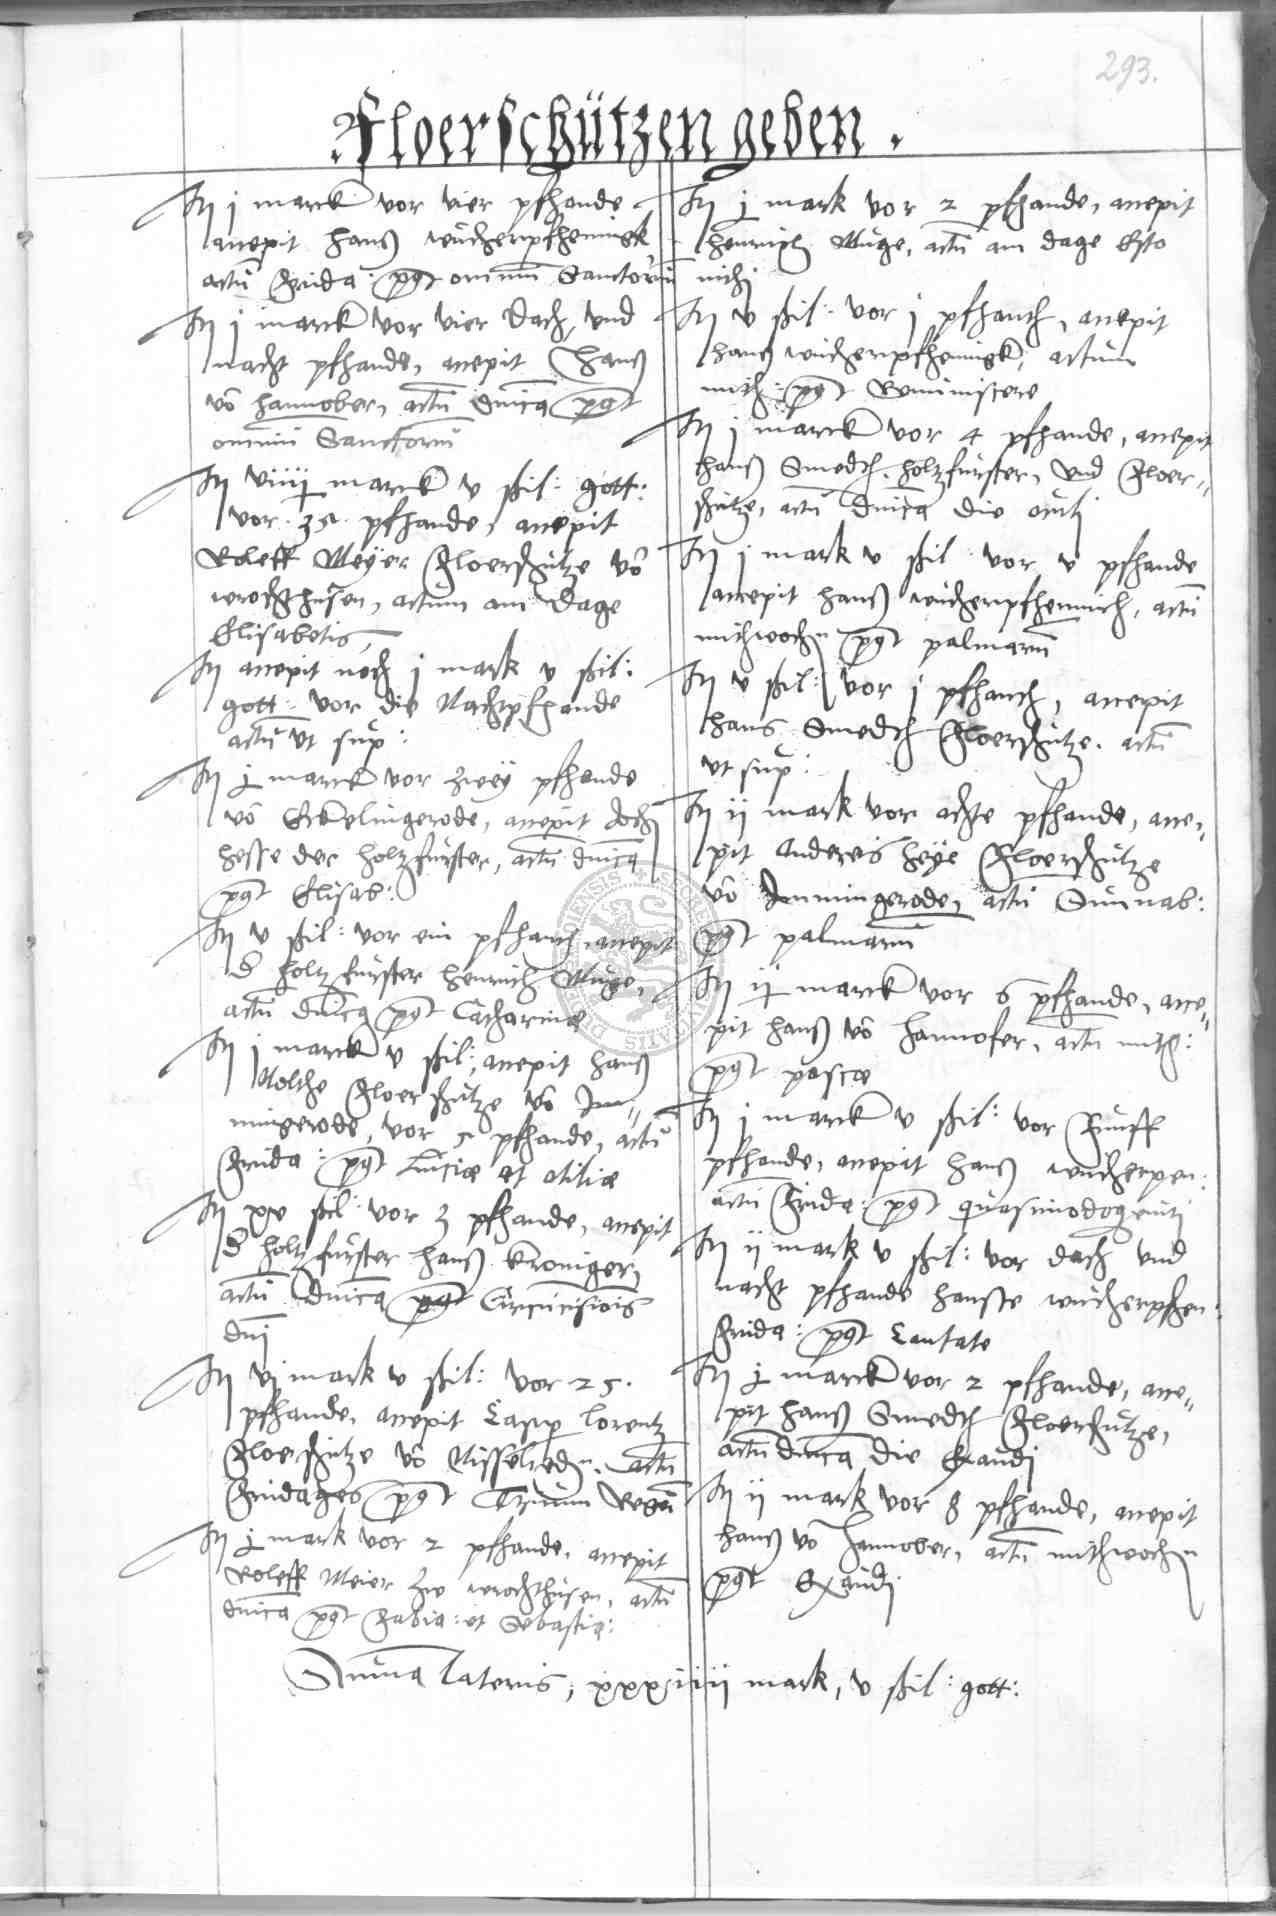 293.
Floerschützen geben.
It j marck vor vier pfhande
accepit Hanß wucherpfhennigk
actū Frida: post omniū Sanctorū
It j marck vor vier dach, vnd
nacht pfhande, accepit Hanß
vō Hannober, actū dn̄ica post
omniū Sanctorū
It marck v ßil: gott:
vor 35 pfhande, accepit
Roleff Meyer Floerschütze vō
wrochthusen, actum am dage
Elisabetis,
It accepit noch j mark v ßil:
gott: vor die Nachtpfhande
actū vt sup:
It marck vor zwey pfhande
vō Eckelingerode, accepit
hesse der holtzfurster, actū dn̄ica
post Elisab:
It v ßil: vor ein pfhandh accepit
d holtzfurster Henrich Muge,
actū dn̄ica post Catharinæ
It j marck v ßil; accepit Hanß
Nolthe Floerschütze vō Im=
mingerode, vor 5 pfhande, actū
Frida: post Luciæ et otiliæ
It xv ßil: vor 3 pfhande, accepit
d holtzfurster Hanß Kroniger,
actū dn̄ica post Circucisiois
dni
It vj mark v ßil: vor 25.
pfhande, accepit Casp Lorentz
Floerschütze vō actū
Fridages post Trium Regū
It mark vor 2 pfhande, accepit
Roleff Meier zw wrochthusen, actū
dn̄ica post Fabia: et Sebastia:
It mark vor 2 pfhande, accepit
Henrich Muge, actū am dage Esto
michi
It v ßil: vor j pfhandh, accepit
Hanß wucherpfhennigk, actum
mith: post Reminiscere
It j marck vor 4 pfhande, accepit
Hanß Smedth holtzfurster, vnd Floer=
schütze, actū dn̄ica die oculi
It j mark v ßil vor v pfhande
accepit Hanß wucherpfhennich, actū
mithwochn post palmarū
It v ßil: vor j pfhandh, accepit
Hans Smedth Floerschütze. actū
vt sup:
It ij mark vor achte pfhande, acce=
pit Anderes Heÿe Floerschütze
vō Immingerode, actū Sunnab:
post palmarū
It marck vor 6 pfhande, acce=
pit Hanß vō Hannofer, actū mith:
post pascæ
It j marck v ßil: vor Funff
pfhande, accepit Hanß wucherpen:
actū Frida: post quasimodogeniti
It ij mark v ßil: vor dach vnd
nacht pfhande Hanße wucherpfhen:
Frida: post Cantate
It marck vor 2 pfhande, acce=
pit Hanß Smedth Floerschütze,
actū dn̄ica die Exaudi
It ij mark vor 8 pfhande, accepit
Hanß vō Hannober, actū mithwochn
post Exaudi
Suma lateris, xxxiiij mark, v ßil: gott: